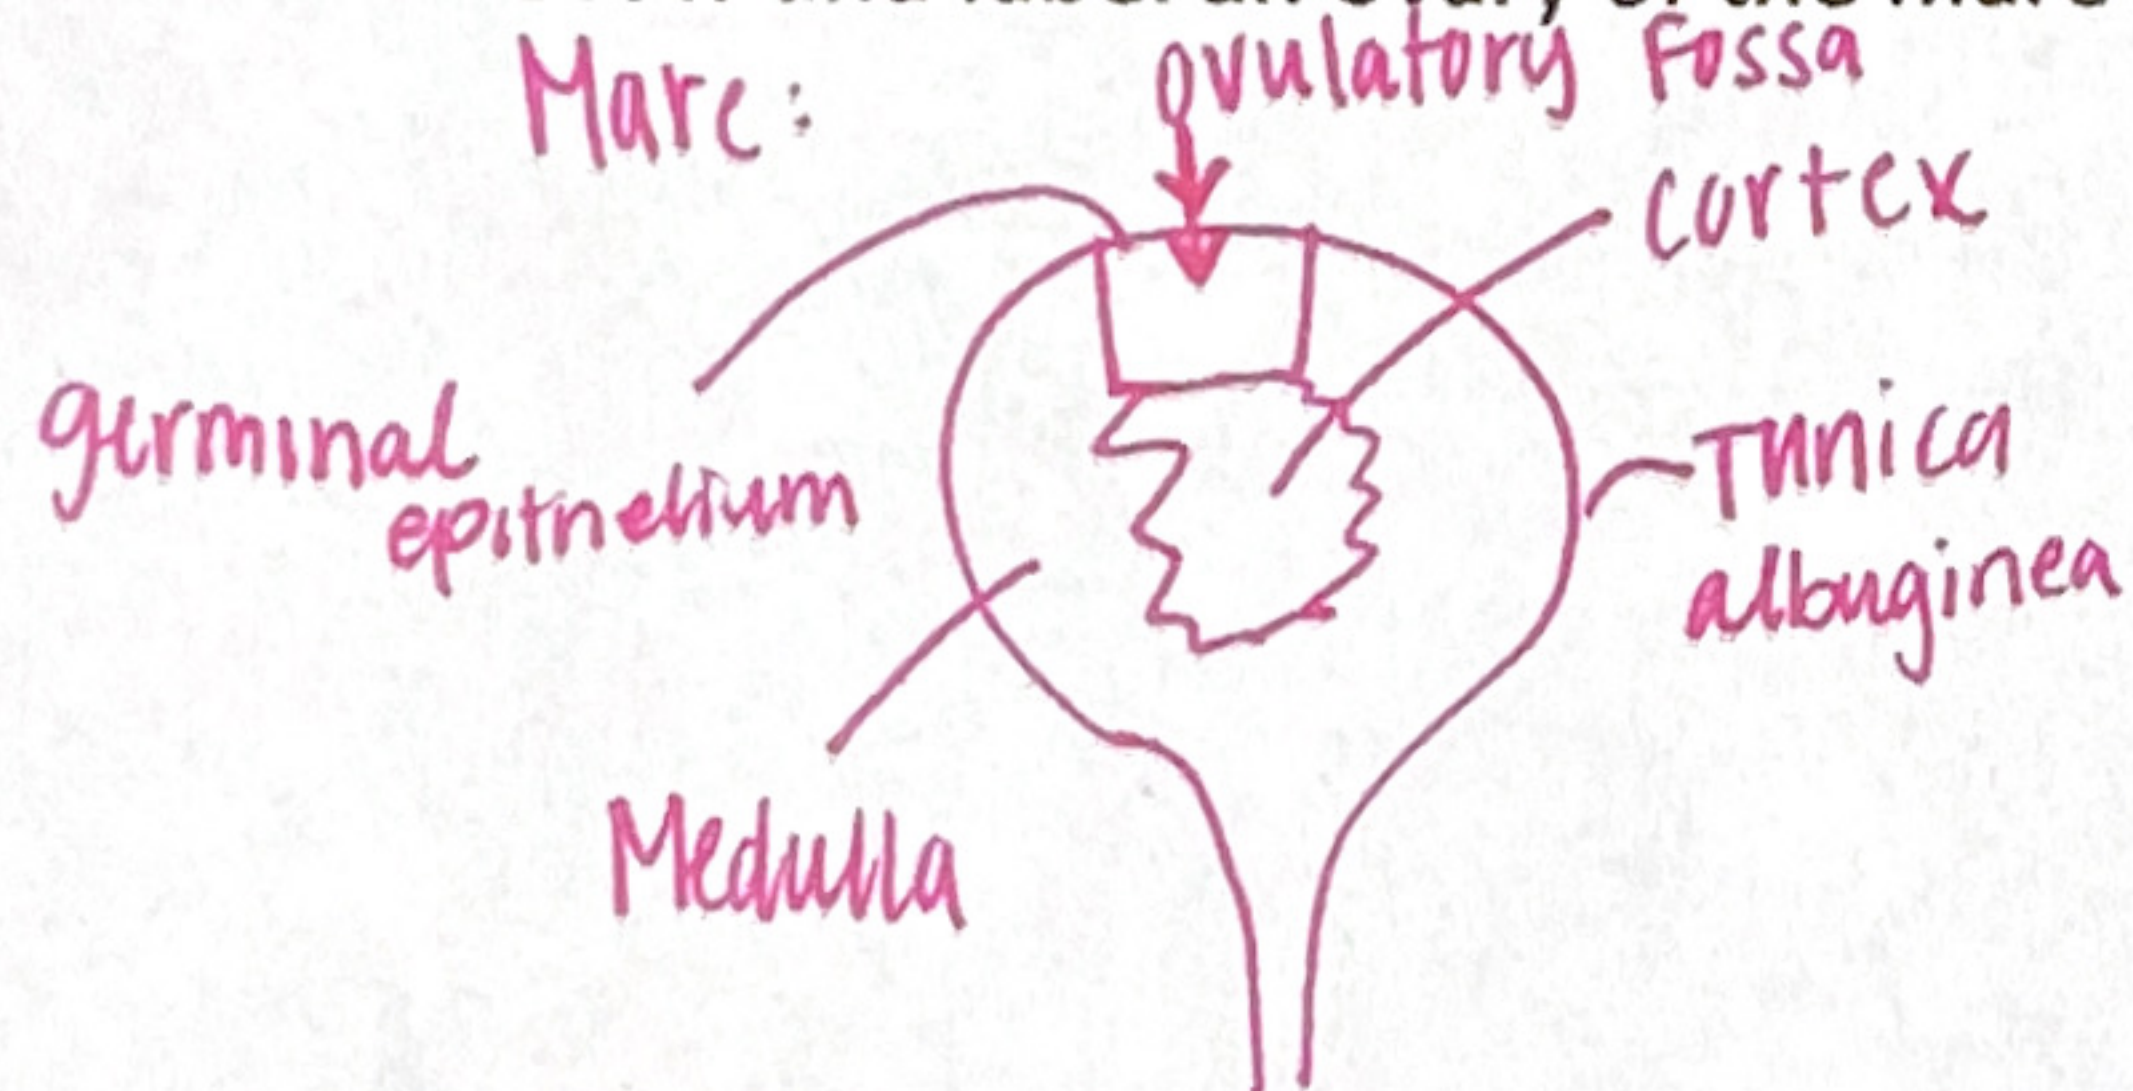 Mare:
ovulatory Fossa
cortex
germinal
epithelium
Tunica
albuginea
Medulla